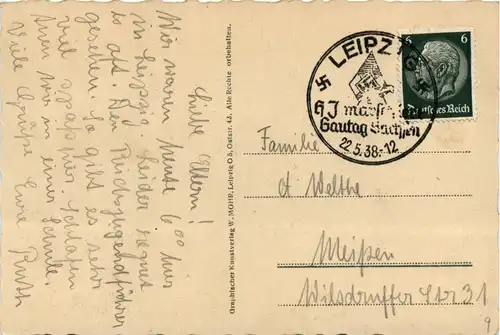 Liebe Eltern!
Wir waren heute 6⁰⁰ hier
in Leipzig. Leider regnet
es oft. Den Reichsjugendführer
gesehen. Es gibt es sehr
viel Spaß hier. Schlafen
tun wir in einer Schule.
Viele Grüße Eure Ruth
Graphischer Kunstverlag W. MOHR, Leipzig O 5, Oststr. 43. Alle Rechte vorbehalten.
LEIPZIG
HJ marschiert
Gautag Sachsen
22.5.38.-12
6 6
Deutsches Reich
Familie
A Welthe
Meißen
Wilsdruffer Str 31
9